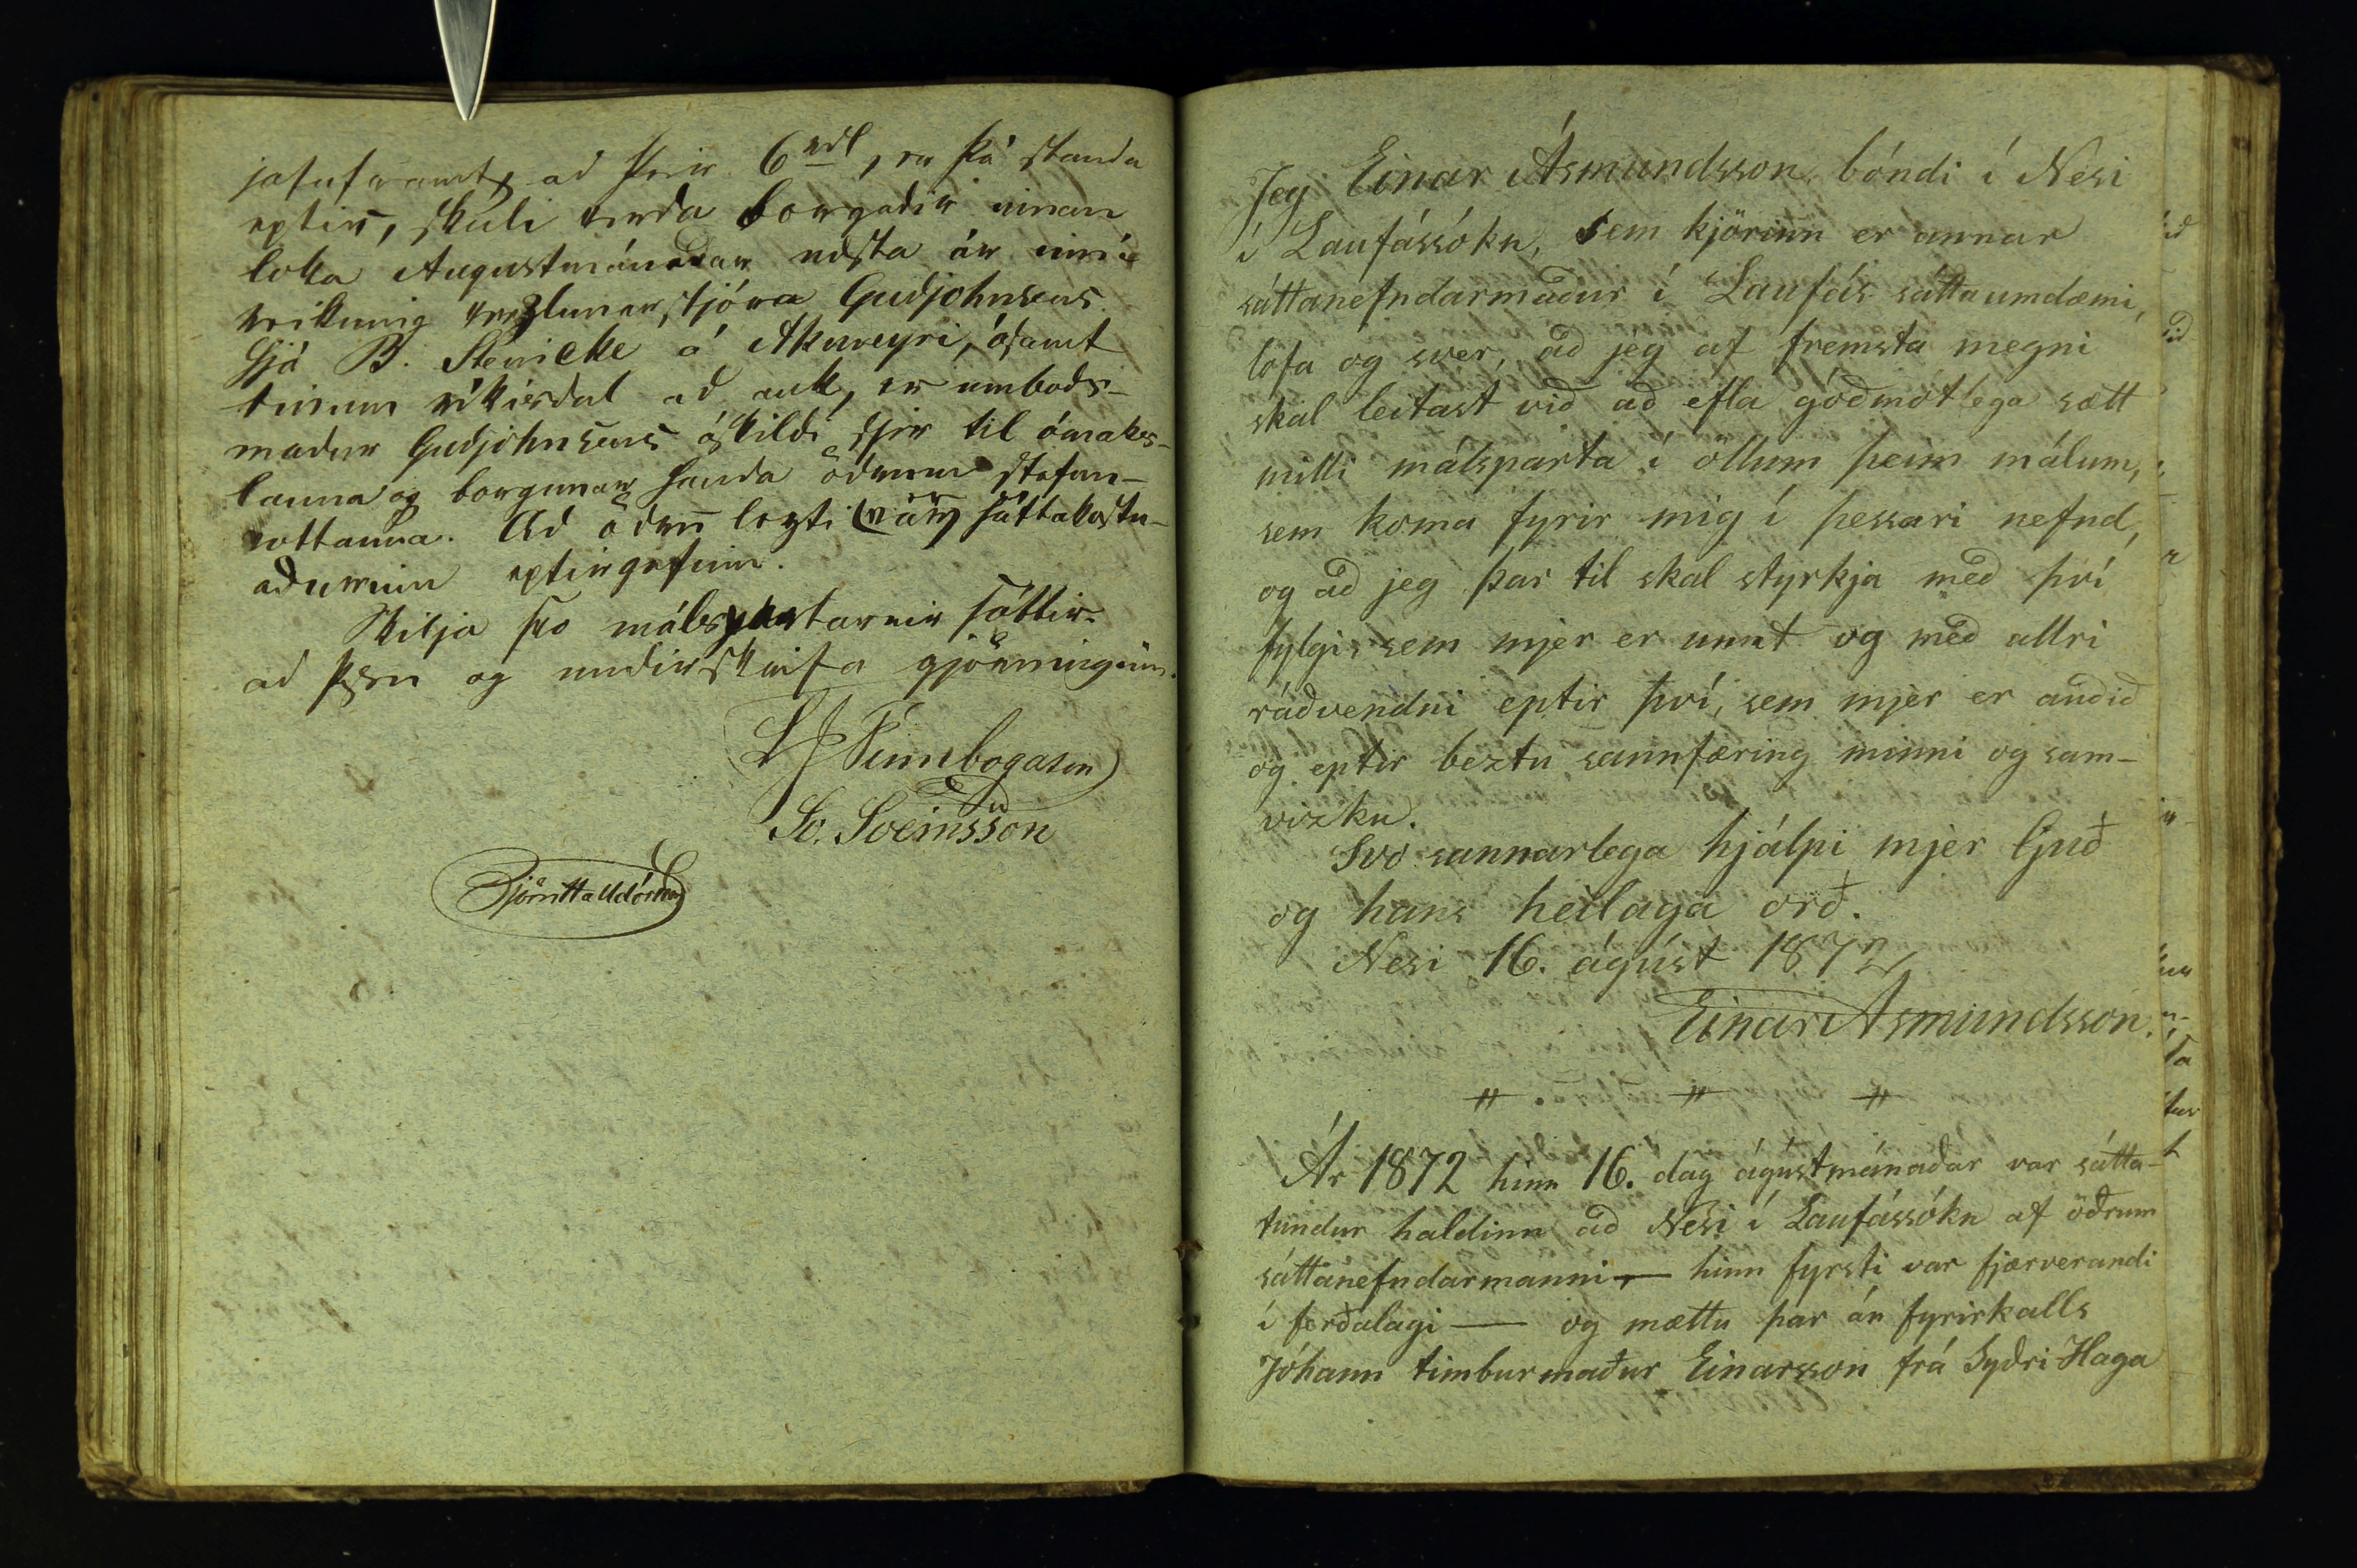 jafnframt, að þeir 6 rdl, er þá standa
eptir, skuli verda borgadir innan
loka Augustmánadar næsta ár inní
reikning verzlunarstjóra Gudjohnsens
hjá B. Steincke á Akureyri, ásamt
einum ríkisdal að auk, er umbods-
madur Gudjohnsens áskildi sjer til ómaks-
launa og borgunar handa ödrum stefnu-
vottanna. Að ödru leyti var sáttakostn-
aðurinn eptirgefinn.
Skilja svo málspartarnir sáttir
að þessu og undirskrifa gjörninginn.
L J Finnbogason
Sv. Sveinsson
Björn Halldórsson
Jeg Einar Ásmundsson bóndi í Nesi
í Laufássókn, sem kjörinn er annar
sáttanefndarmaður í Laufás sáttaumdæmi,
lofa og sver, að jeg af fremsta megni
skal leitast við að efla góðmótlega sætt
milli málsparta í öllum þeim málum,
sem koma fyrir mig í þessari nefnd,
og að jeg þar til skal styrkja með því
fylgi, sem mjer er unnt og með allri
ráðvendni eptir því, sem mjer er auðið
og eptir beztu sannfæring minni og sam-
vizku.
Svo sannarlega hjálpi mjer Guð
og hans heilaga orð.
Nesi 16. ágúst 1872
Einar Ásmundsson.
〃 〃 〃
Ár 1872 hinn 16. dag ágústmánaðar var sátta-
fundur haldinn að Nesi í Laufássókn af öðrum
sáttanefndarmanni — hinn fyrsti var fjærverandi
í ferðalagi — og mættu þar án fyrirkalls
Jóhann timburmaður Einarsson frá Syðri Haga